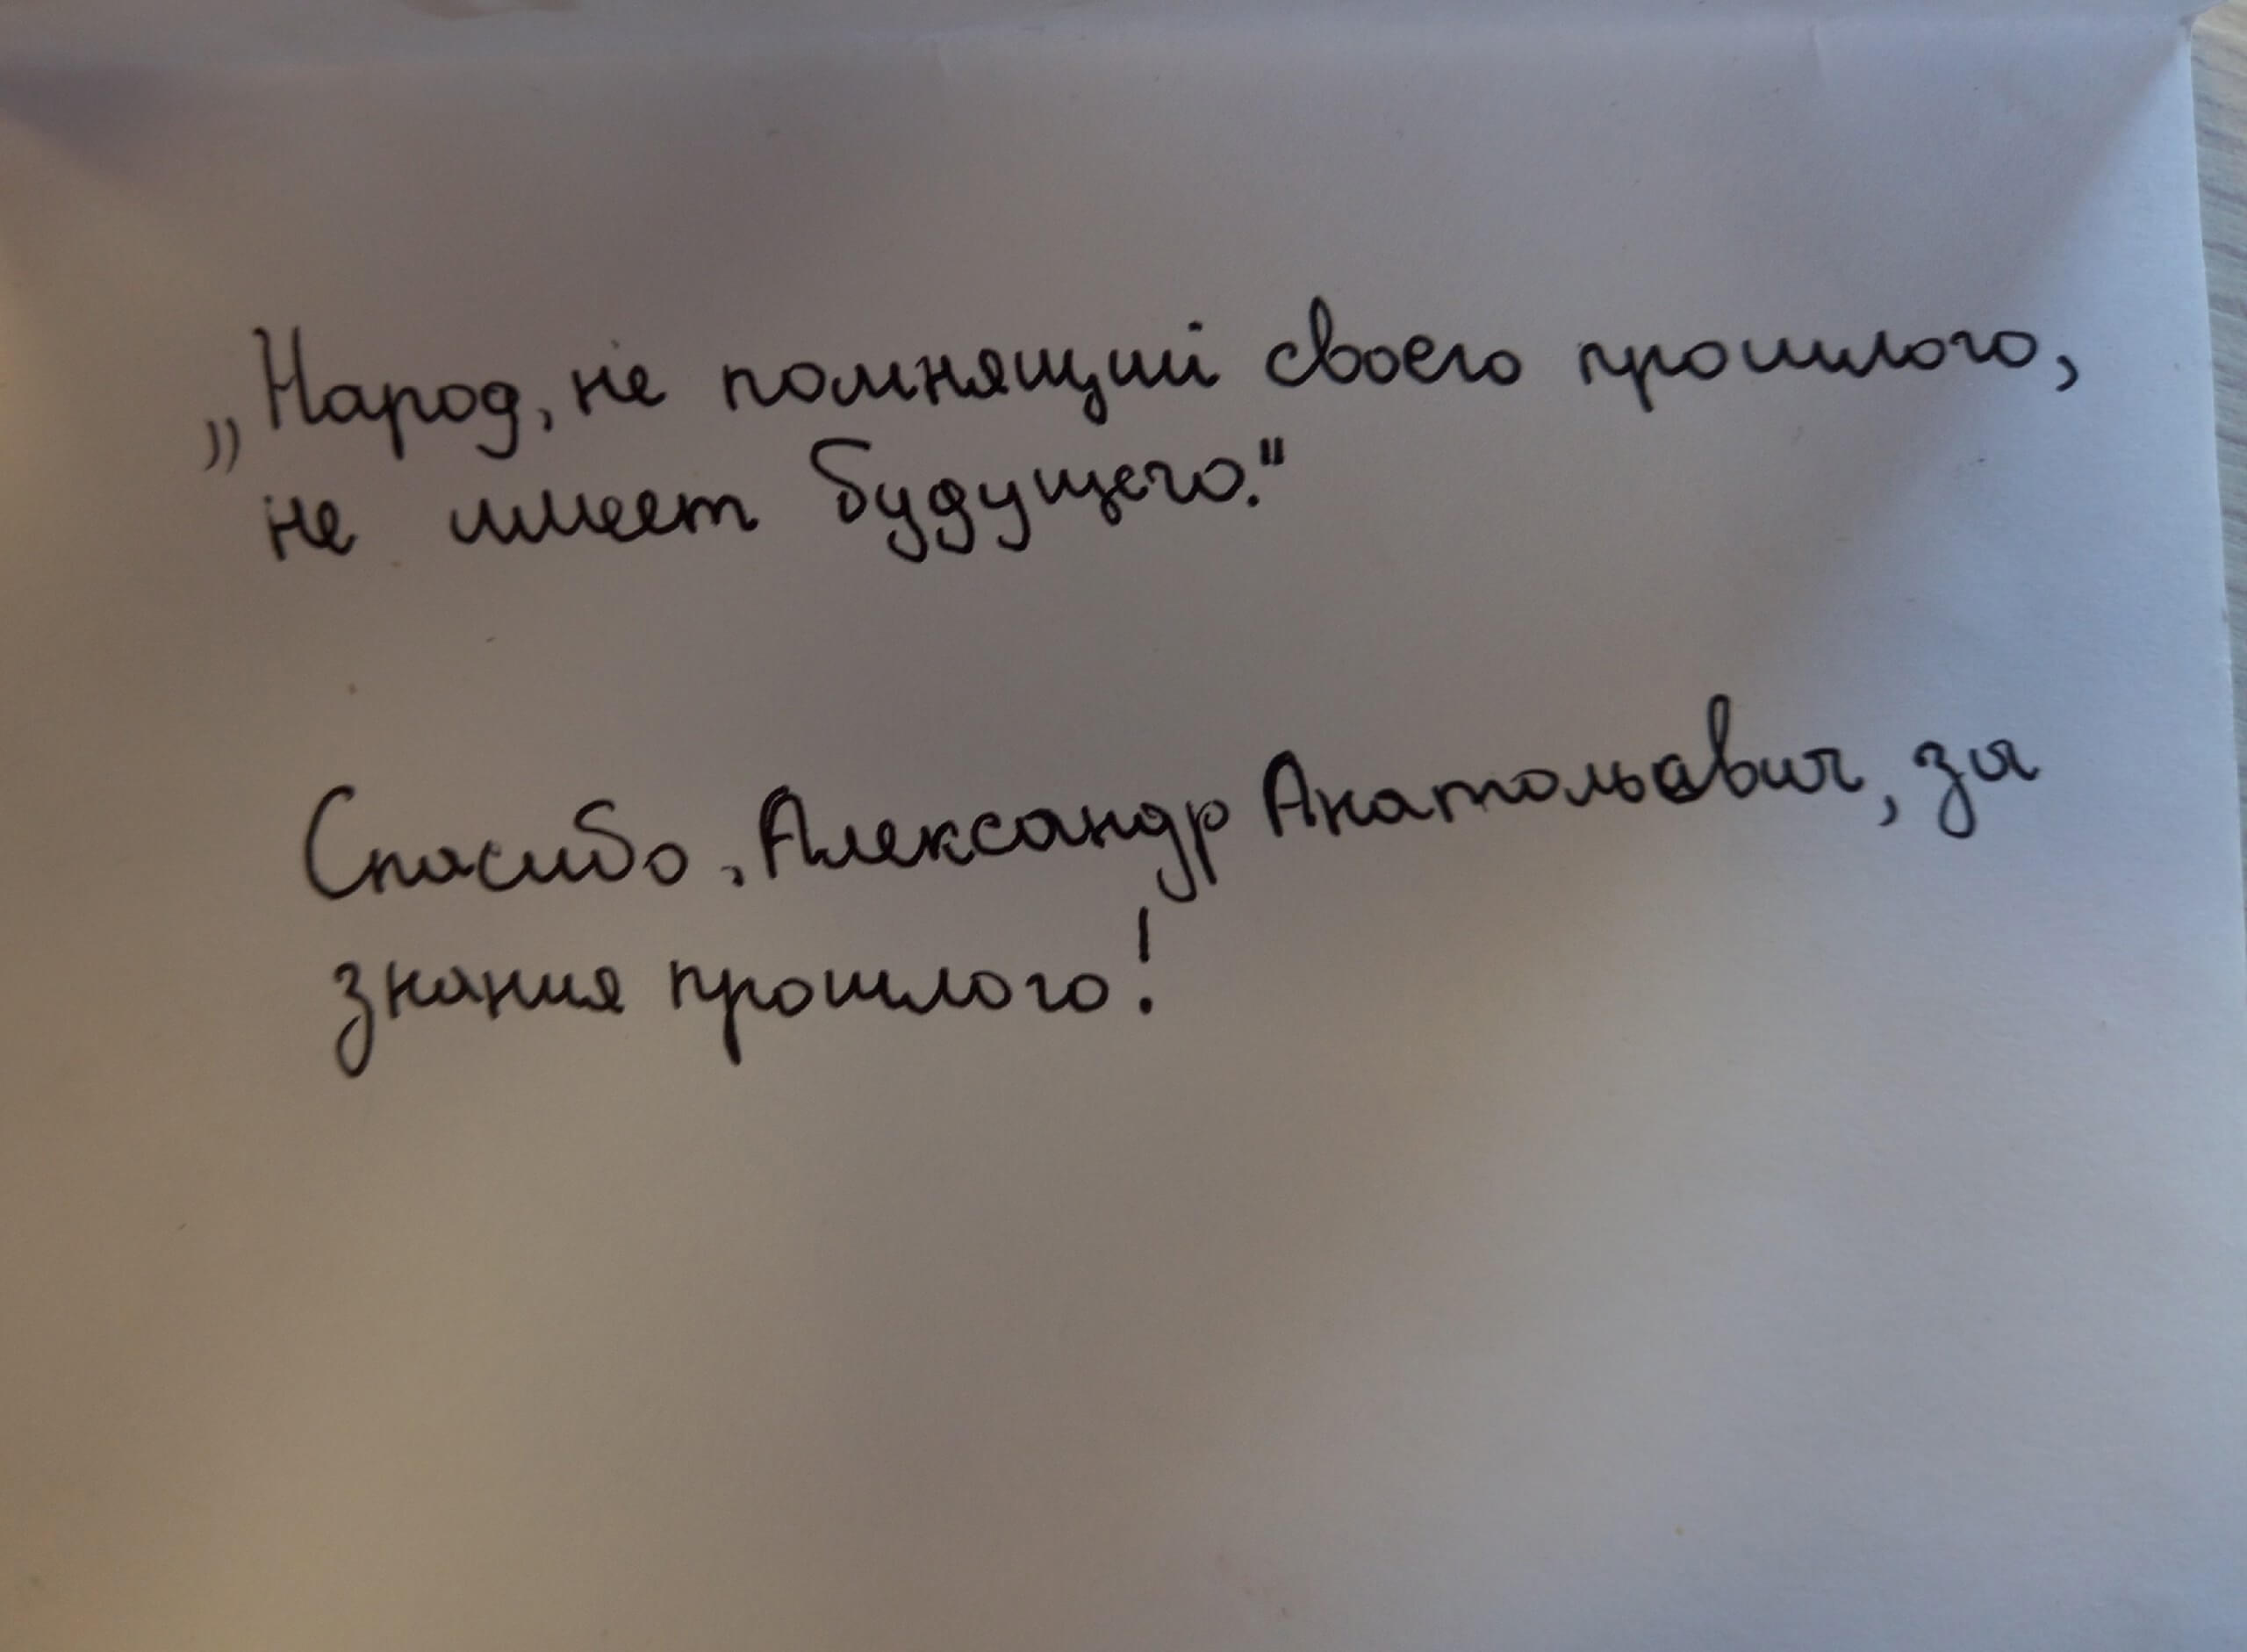 „Народ, не помнящий своего прошлого,
не имеет будущего."
Спасибо, Александр Анатольавич, за
знания прошлого!